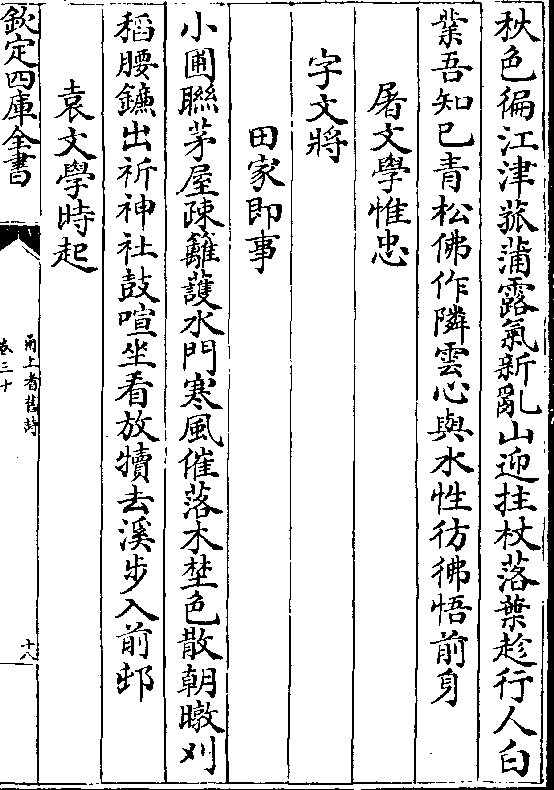 秋色徧江津菰蒲露氣新亂山迎拄杖落葉趁行人白
業吾知己青松佛作隣雲心與水性彷彿悟前身
屠文學惟忠
字文將
田家即事
小圃聯茅屋疎籬䕶水門寒風催落木埜色散朝暾刈
稻腰鐮出祈神社鼓喧坐看放犢去溪步入前邨
袁文學時起
欽定四庫全書
甬上耆舊詩
卷三十
十八